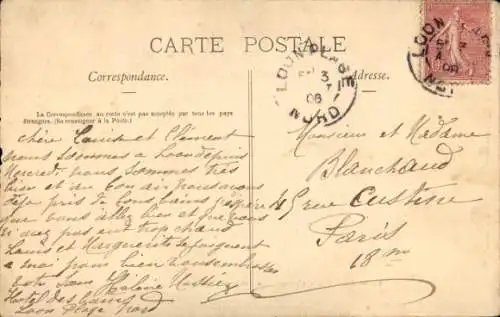 CARTE POSTALE
Correspondance.
Adresse.
La Correspondance au recto n'est pas acceptée par tous les pays
étrangers. (Se renseigner à la Poste.)
LOON-PLAGE
3
06
NORD
LOON
06
chère Louise et Clément
nous sommes a Loon depuis
Mercredi nous sommes très
bien et au bon air nous avons
déja pris de bons bains j'espère
que vous allez bien et que vous
n'avez pas eu trop chaud
Louis et Marguerite se joignent
a moi pour bien vous embrasser
Hotel des bains
Loon Plage Nord
Monsieur et Madame
Blanchaud
45 rue Custine
Paris
18me